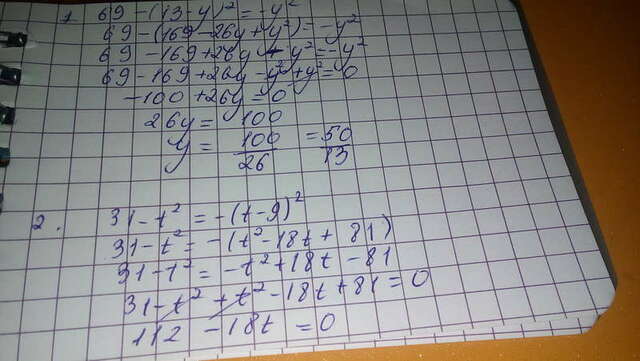 1. 69-(13-y)²=-y²
69-(169-26y+y²)=-y²
69-169+26y-y²=-y²
69-169+26y-y²+y²=0
-100+26y=0
26y=100
y=100/26=50/13
2. 31-t²=-(t-9)²
31-t²=-(t²-18t+81)
31-t²=-t²+18t-81
31-t²+t²-18t+81=0
112-18t=0